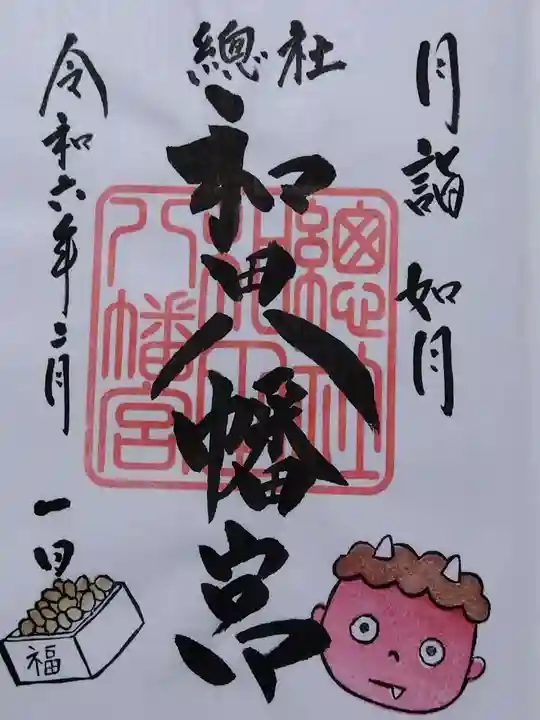 月詣 如月
總社
和田八幡宮
總社
和田
八幡宮
令和六年二月
一日
福